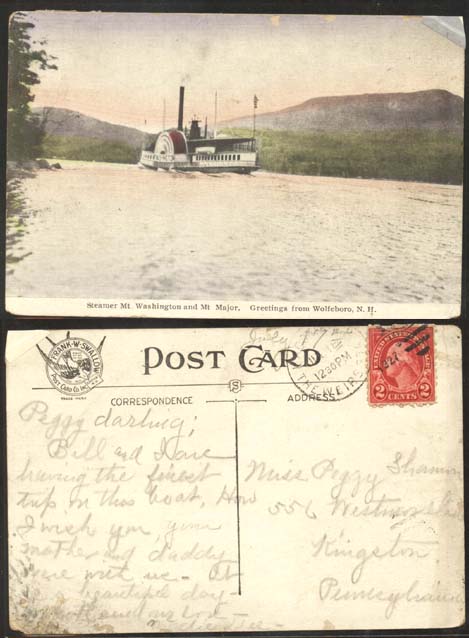 Steamer Mt. Washington and Mt Major. Greetings from Wolfeboro, N. H.
FRANK·W·SWALLOW
POST CARD CO. INC.
TRADE MARK
POST CARD
July
12 30 PM
THE WEIRS
UNITED STATES
2 CENTS 2
CORRESPONDENCE
ADDRESS
Peggy darling;
Bill and I are
having the finest
trip on this boat. How
I wish you, your
mother and daddy
were with us - It
beautiful day -
Miss Peggy Shannon
556 Westmor
Kingston
Pennsylvania